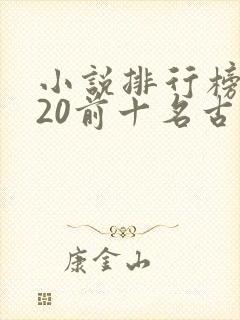 小説排行榜
20前十名古
康金山